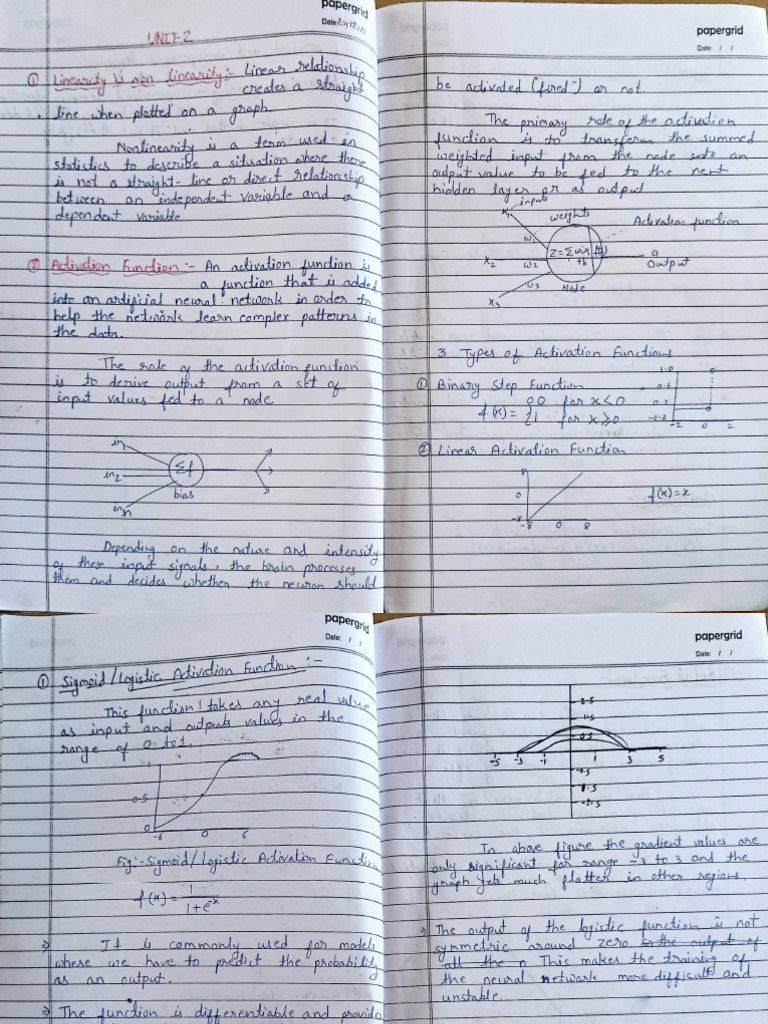 papergrid
Date: 25/12/21
UNIT-2
① Linearity Vs non linearity:- Linear relationship
creates a straight
line when plotted on a graph.
Nonlinearity is a term used in
statistics to describe a situation where there
is not a straight-line or direct relationship
between an independent variable and a
dependent variable
② Activation Function:- An activation function is
a function that is added
into an artificial neural network in order to
help the network learn complex patterns in
the data.
The role of the activation function
is to derive output from a set of
input values fed to a node
in1
in2
inn
Σf
bias
Depending on the nature and intensity
of these input signals, the brain processes
them and decides whether the neuron should
papergrid
Date: / /
be activated (fired") or not.
The primary role of the activation
function is to transform the summed
weighted input from the node into an
output value to be fed to the next
hidden layer or as output
input
x1
weights
Activation function
w1
x2
w2
Z=Σwixi
+b
f(z)
a
Output
x3
w3
Node
3 Types of Activation Functions
① Binary Step Function
f(x) = {0 for x<0
{1 for x≥0
1.0
0.6
0.2
-0.2
-2 0 2
② Linear Activation Function
8
0
-8
-8 0 8
f(x)=x
papergrid
Date: / /
① Sigmoid/Logistic Activation Function:-
This function takes any real value
as input and outputs values in the
range of 0 to 1.
1
0.5
0
-6 0 6
Fig:-Sigmoid/Logistic Activation Functi
f(x) = 1
1+e^-x
⇒ It is commonly used for models
where we have to predict the probability
as an output.
⇒ The function is differentiable and provide
papergrid
Date: / /
2.5
1.5
0.5
-5 -3 -1 1 3 5
-0.5
-1.5
-2.5
In above figure the gradient values are
only significant for range -3 to 3 and the
graph gets much flatter in other regions.
⇒ The output of the logistic function is not
symmetric around zero so the output of
all the n This makes the training of
the neural network more difficult and
unstable.